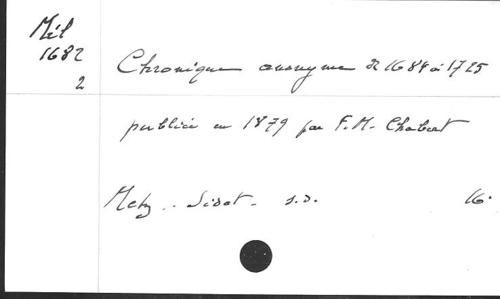 Mél
1682
2
Chronique anonyme de 1684 à 1725
publiée en 1879 par F.M. Chabert
Metz - Sidot - s.d. 16.